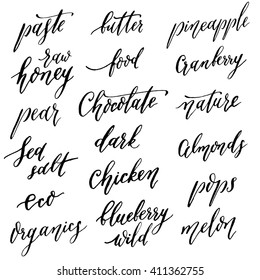 paste
raw
honey
pear
Sea
salt
eco
organics
butter
food
Chocolate
dark
Chicken
blueberry
wild
pineapple
Cranberry
nature
Almonds
pops
melon
shutterstock.com · 411362755